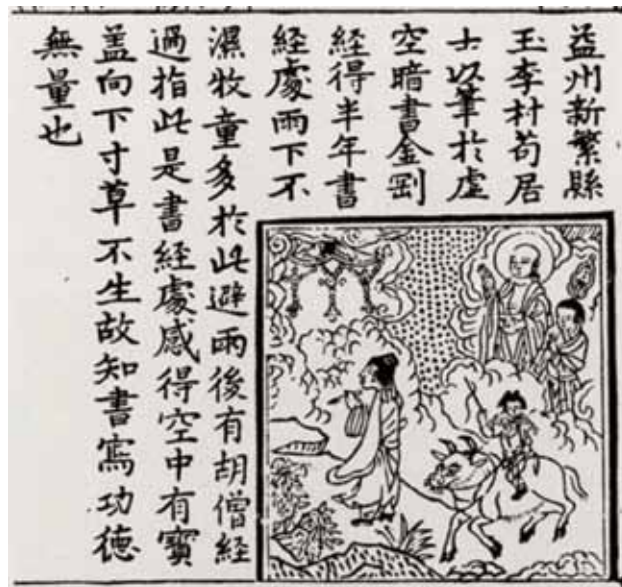 益州新繁縣
玉李村茍居
士以筆扵虛
空暗書金剛
經得半年書
經處雨下不
濕牧童多扵此避雨後有胡僧經
過指此是書經處感得空中有寳
盖向下寸草不生故知書寫功德
無量也